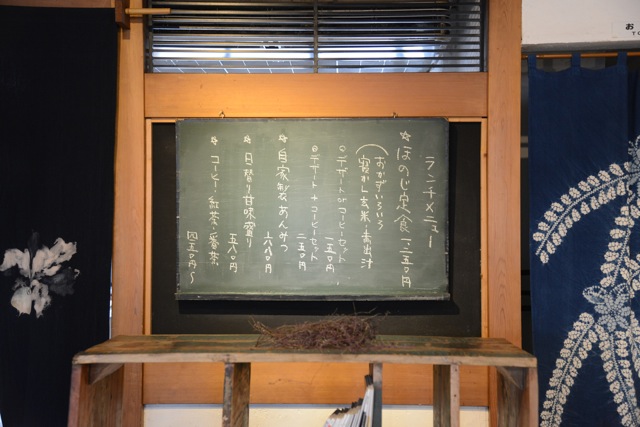 ランチメニュー
☆ほのじ定食 一、二五〇円
(おかずいろいろ
寝かし玄米・赤出汁
○デザート or コーヒーセット
一五〇円
○デザート+コーヒーセット
二五〇円
☆自家製あんみつ
六八〇円
☆日替り甘味盛り
五八〇円
☆コーヒー・紅茶・番茶
四五〇円〜
お
TO